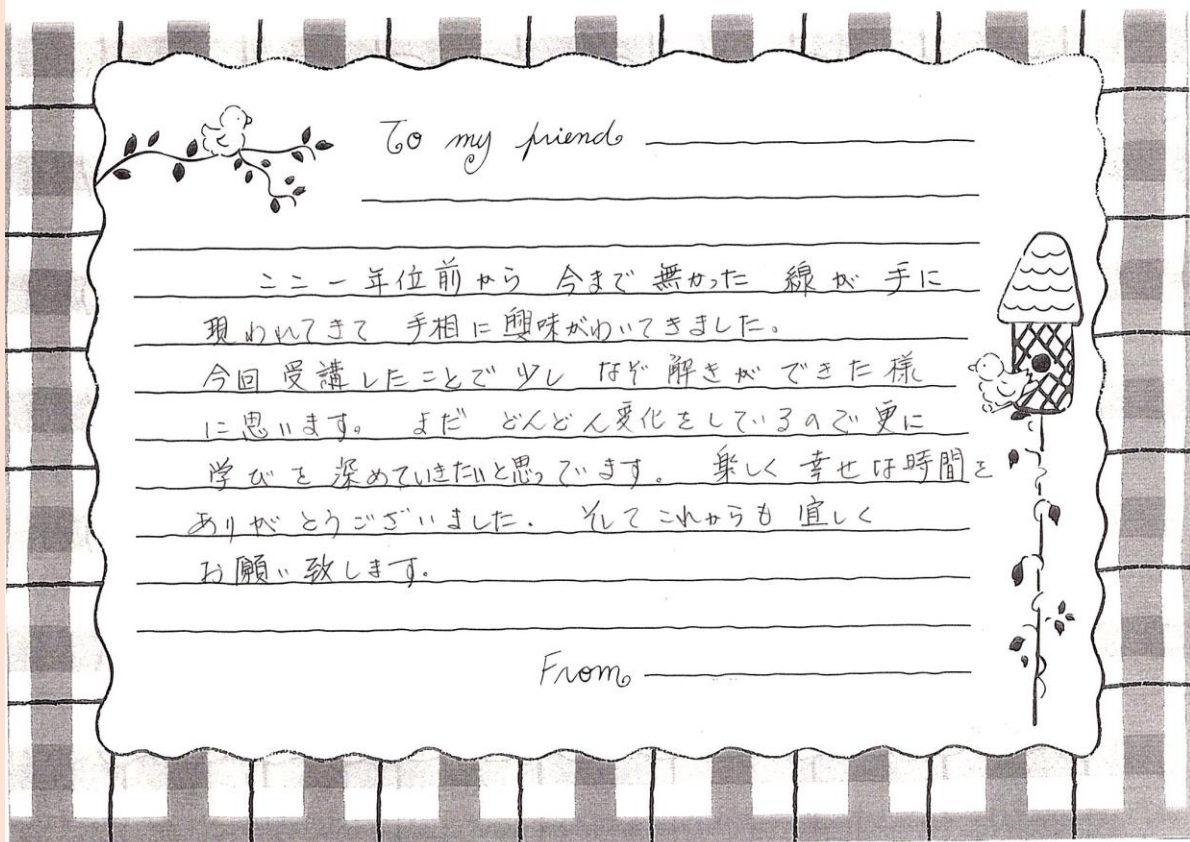 To my friend
ここ一年位前から 今まで 無かった 線が 手に
現われてきて 手相に興味がわいてきました。
今回 受講したことで 少し なぞ解きが できた様
に思います。 まだ どんどん変化をしているので更に
学びを深めていきたいと思っています。 楽しく幸せな時間を
ありがとうございました。 そしてこれからも宜しく
お願い致します。
From